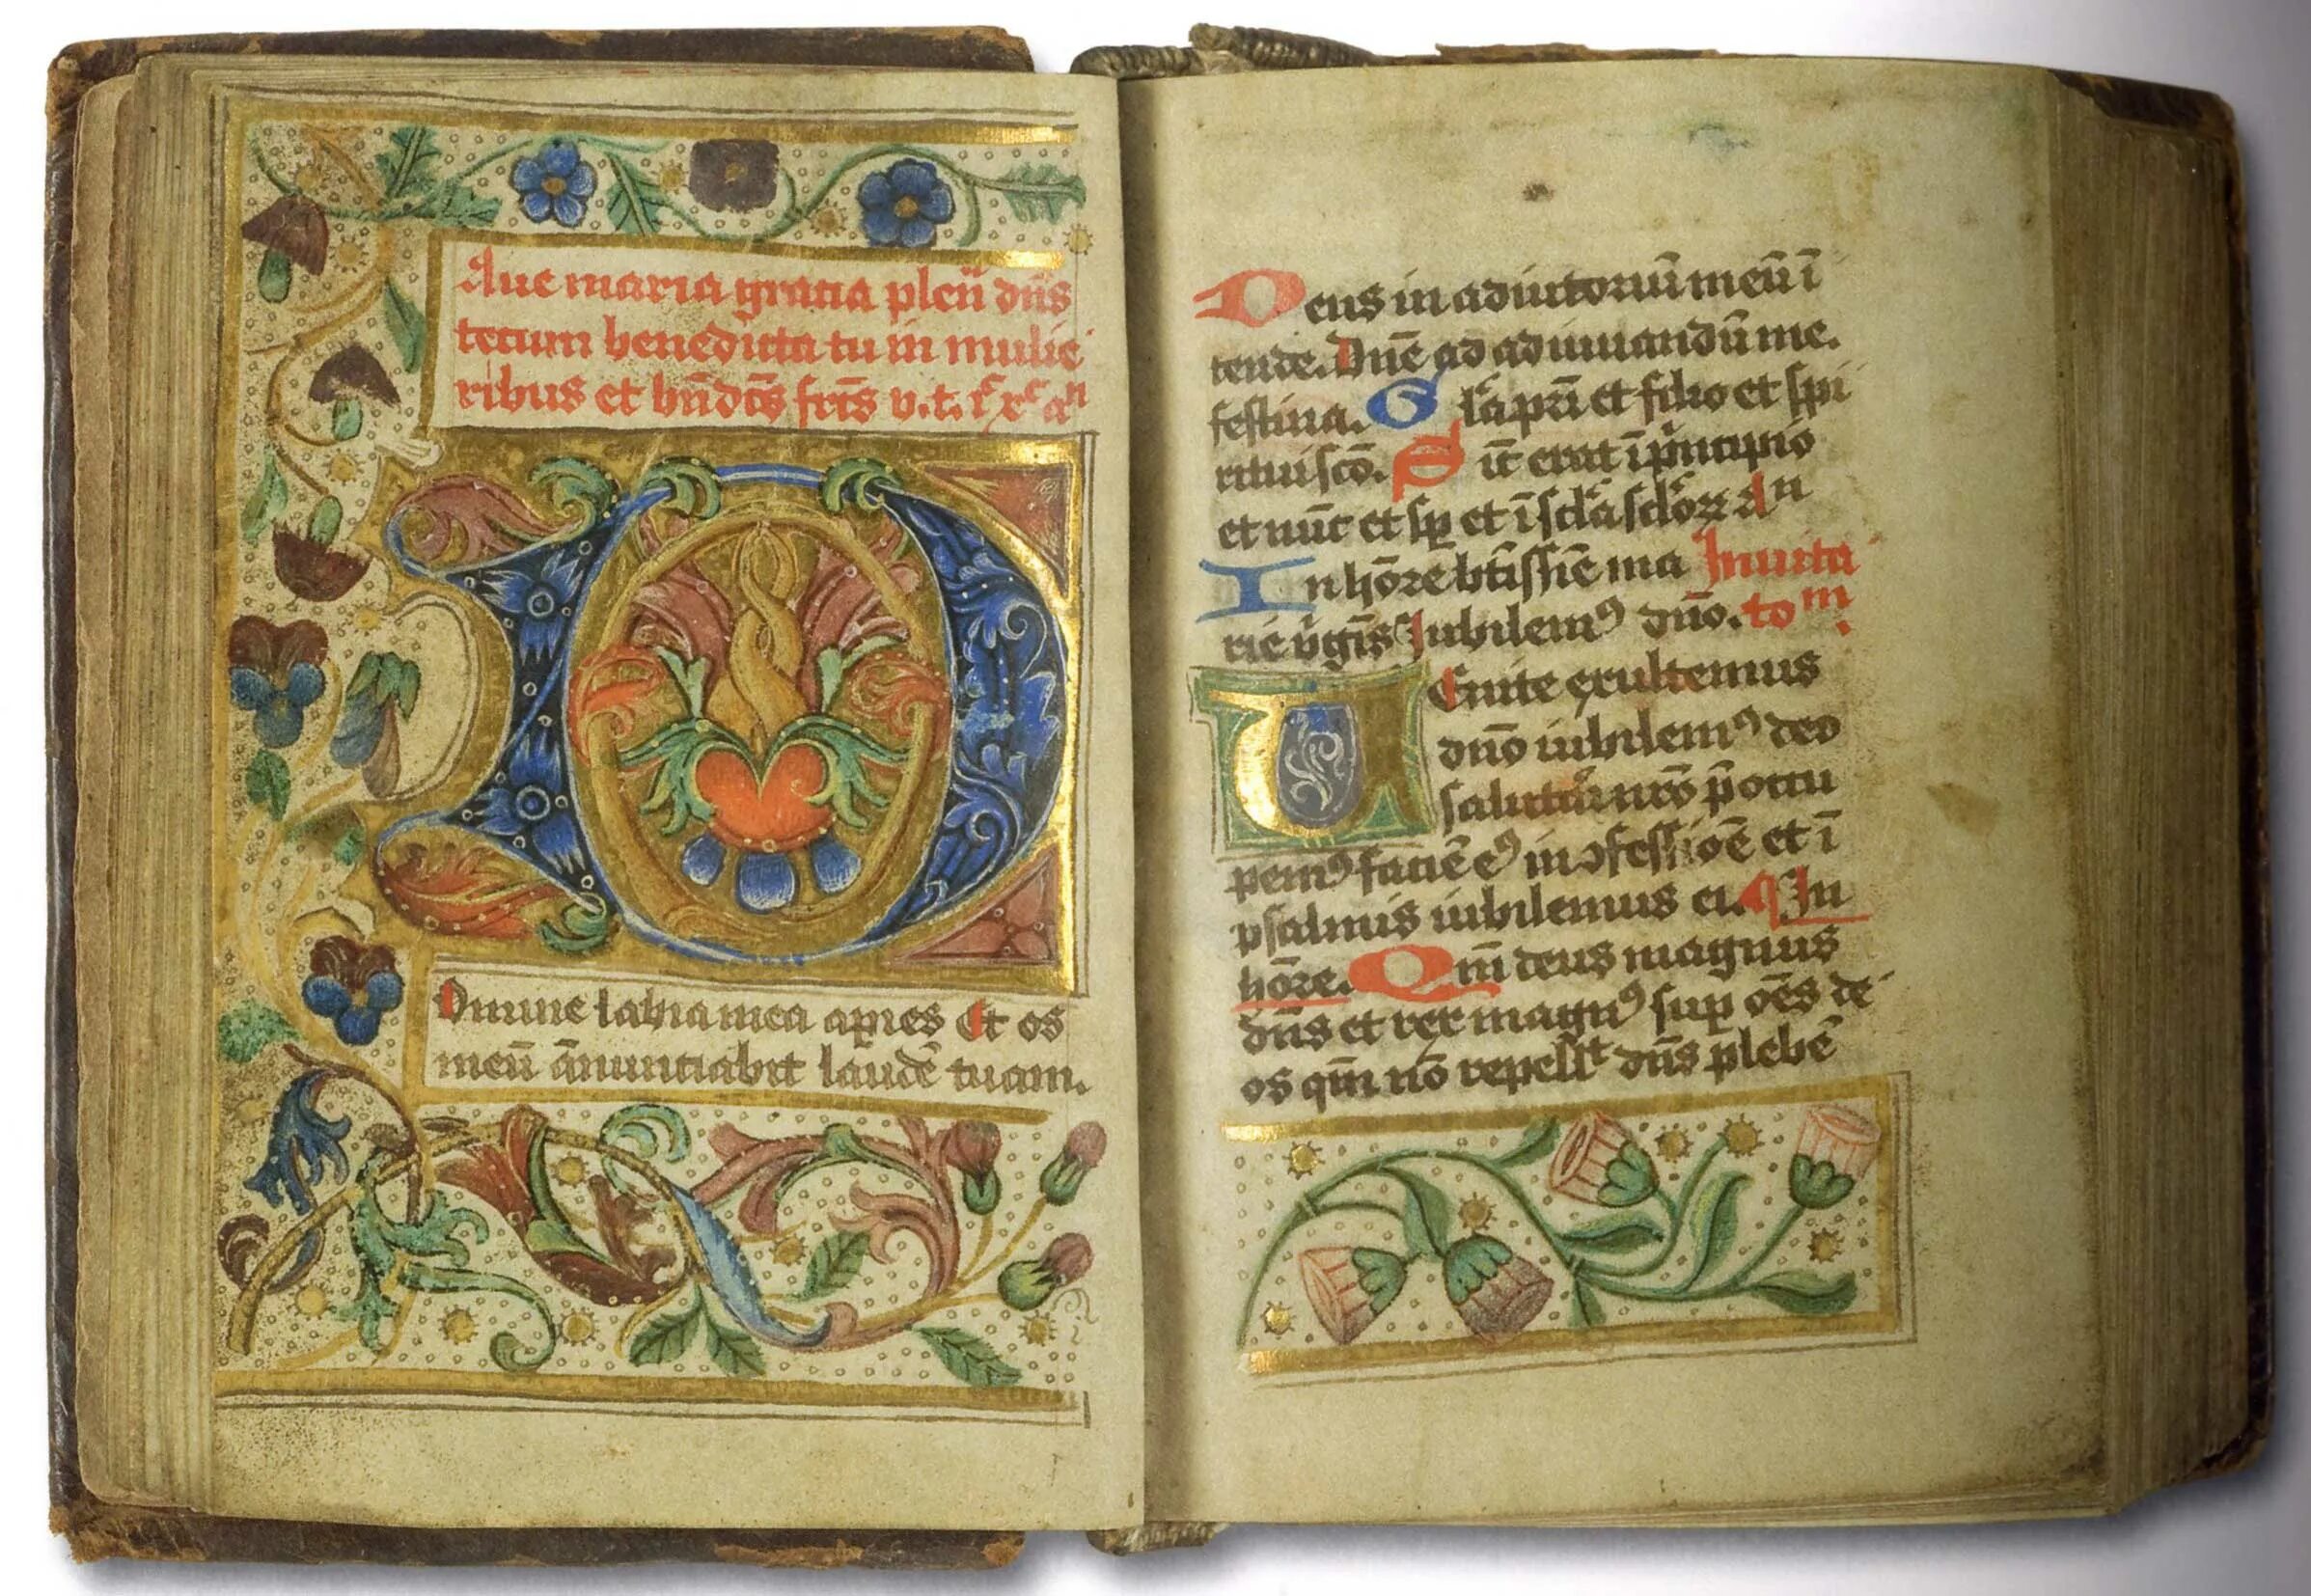 Aue maria gratia plen̄ dn̄s
tecum benedicta tu in mulie
ribus et bn̄dcs̄ frc̄s v. t. ih̄c xp̄c am̄
Domine labia mea apies Et os
meū ānuntiabit laudē tuam.
Deus in adiutoriū meū ī
tende. Dn̄e ad adiuuandū me.
festina. Gla pr̄i et filio et spi
ritui scō. Sic̄ erat ī pncipio
et nūc et sp et ī scla sclōꝝ An
In hōre btīssīe ma Inuita
rie v̄gīs Jubilemꝯ dn̄o. to m.
Uenite exultemus
dn̄o iubilemꝯ deo
salutari nr̄o p̄occu
pemꝯ faciē eꝯ in ꝯfessiōe et ī
psalmis iubilemus ei. In
hōre. Qm̄ deus magnus
dn̄s et rex magnꝯ sup oēs de
os qm̄ nō repellt dn̄s plebē